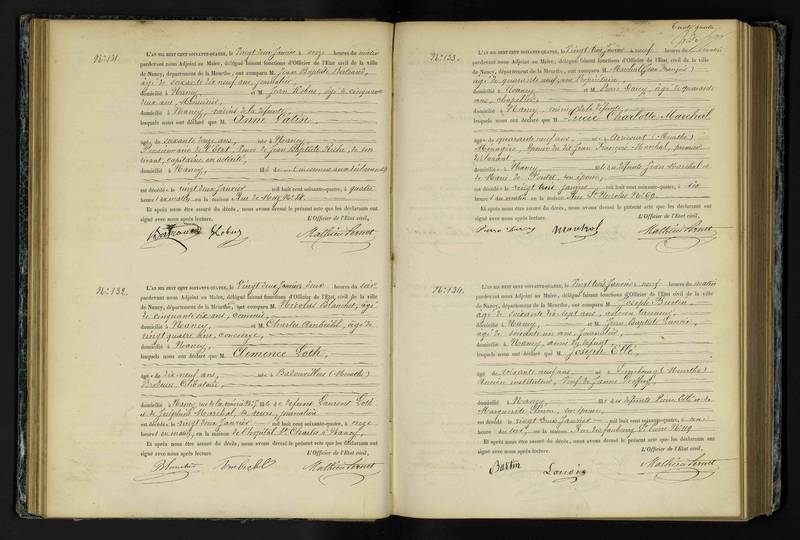 N.º 131.
L'AN MIL HUIT CENT SOIXANTE-QUATRE, le Vingt deux Janvier à onze heures du matin
pardevant nous Adjoint au Maire, délégué faisant fonctions d'Officier de l'Etat civil de la ville
de Nancy, département de la Meurthe, ont comparu M. Jean Baptiste Bertrand,
âgé de soixante dix neuf ans, journalier,
domicilié à Nancy, et M. Jean Hobus, âgé de cinquante
deux ans, Menuisier,
domicilié à Nancy, voisins de la défunte,
lesquels nous ont déclaré que M. Anne Valin,
âgée de soixante onze ans, née à Nancy
Pensionnaire de l'Etat, Veuve de Jean Baptiste Riche, de son
vivant, capitaine en activité,
domiciliée à Nancy,
est décédée le vingt deux Janvier mil huit cent soixante-quatre, à quatre
heures du matin, en la maison Rue de Metz N.º
Et après nous être assuré du décès, nous avons dressé le présent acte que les déclarants ont
signé avec nous après lecture. L'Officier de l'Etat civil,
Bertrand Hobus Mathieu
N.º 132.
L'AN MIL HUIT CENT SOIXANTE-QUATRE, le Vingt deux Janvier deux heures du soir
pardevant nous Adjoint au Maire, délégué faisant fonctions d'Officier de l'Etat civil de la ville
de Nancy, département de la Meurthe, ont comparu M. Nicolas Blanchet, âgé
de cinquante six ans, commis,
domicilié à Nancy, et M. Charles âgé de
vingt quatre ans, concierge,
domicilié à Nancy,
lesquels nous ont déclaré que M. Clémence Loth,
âgée de dix neuf ans, née à Badonviller (Meurthe)
Brodeuse, Célibataire,
domiciliée à Nancy, rue de la fille de défunt Laurent Loth
et de Joséphine Marchal, sa veuve, journalière
est décédée le vingt deux Janvier mil huit cent soixante-quatre, à onze
heures du matin, en la maison de l'hôpital St. Charles à Nancy,
Et après nous être assuré du décès, nous avons dressé le présent acte que les déclarants ont
signé avec nous après lecture. L'Officier de l'Etat civil,
Blanchet Mathieu
N.º 133.
L'AN MIL HUIT CENT SOIXANTE-QUATRE, le Vingt trois Janvier à neuf heures du matin
pardevant nous Adjoint au Maire, délégué faisant fonctions d'Officier de l'Etat civil de la ville
de Nancy, département de la Meurthe, ont comparu M. Marchal (Jean François)
âgé de quarante neuf ans, Propriétaire,
domicilié à Nancy et M. Pierre âgé de quarante
ans, chapelier,
domicilié à Nancy, voisin de la défunte,
lesquels nous ont déclaré que M. Lucie Charlotte Marchal
âgée de quarante neuf ans, née à Azerailles (Meurthe)
Ménagère, épouse du dit Jean François Marchal, premier
déclarant
domiciliée à Nancy fille de défunts Jean Marchal et
de Marie de son épouse,
est décédée le vingt trois Janvier mil huit cent soixante-quatre, à six
heures du matin en la maison Rue St. Nicolas N.º 69.
Et après nous être assuré du décès, nous avons dressé le présent acte que les déclarants ont
signé avec nous après lecture. L'Officier de l'Etat civil,
Pierre Marchal Mathieu
N.º 134.
L'AN MIL HUIT CENT SOIXANTE-QUATRE, le Vingt trois Janvier neuf heures du matin
pardevant nous Adjoint au Maire, délégué faisant fonctions d'Officier de l'Etat civil de la ville
de Nancy, département de la Meurthe, ont comparu M. Joseph Burtin,
âgé de soixante dix sept ans, ancien tanneur,
domicilié à Nancy, et M. Jean Baptiste
âgé de soixante ans, journalier,
domicilié à Nancy, amis du défunt,
lesquels nous ont déclaré que M. Joseph Ellé,
âgé de soixante neuf ans, né à (Meurthe)
Ancien instituteur, Veuf de Jeanne
domicilié à Nancy, fils de défunts Pierre Ellé et de
Marguerite son épouse,
est décédé le vingt deux Janvier mil huit cent soixante-quatre, à onze
heures du soir, en la maison Rue du faubourg St. Pierre N.º 119
Et après nous être assuré du décès, nous avons dressé le présent acte que les déclarants ont
signé avec nous après lecture. L'Officier de l'Etat civil,
Burtin Mathieu